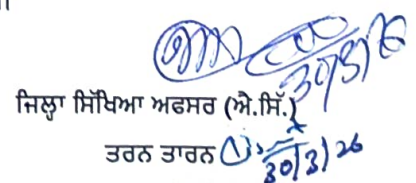 30/3/26
ਜਿਲ੍ਹਾ ਸਿੱਖਿਆ ਅਫਸਰ (ਐ.ਸਿੱ.)
ਤਰਨ ਤਾਰਨ
30/3/26